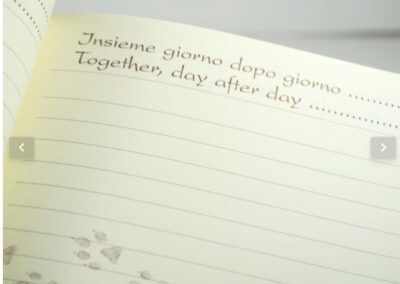 Insieme giorno dopo giorno ..........
Together, day after day ..............